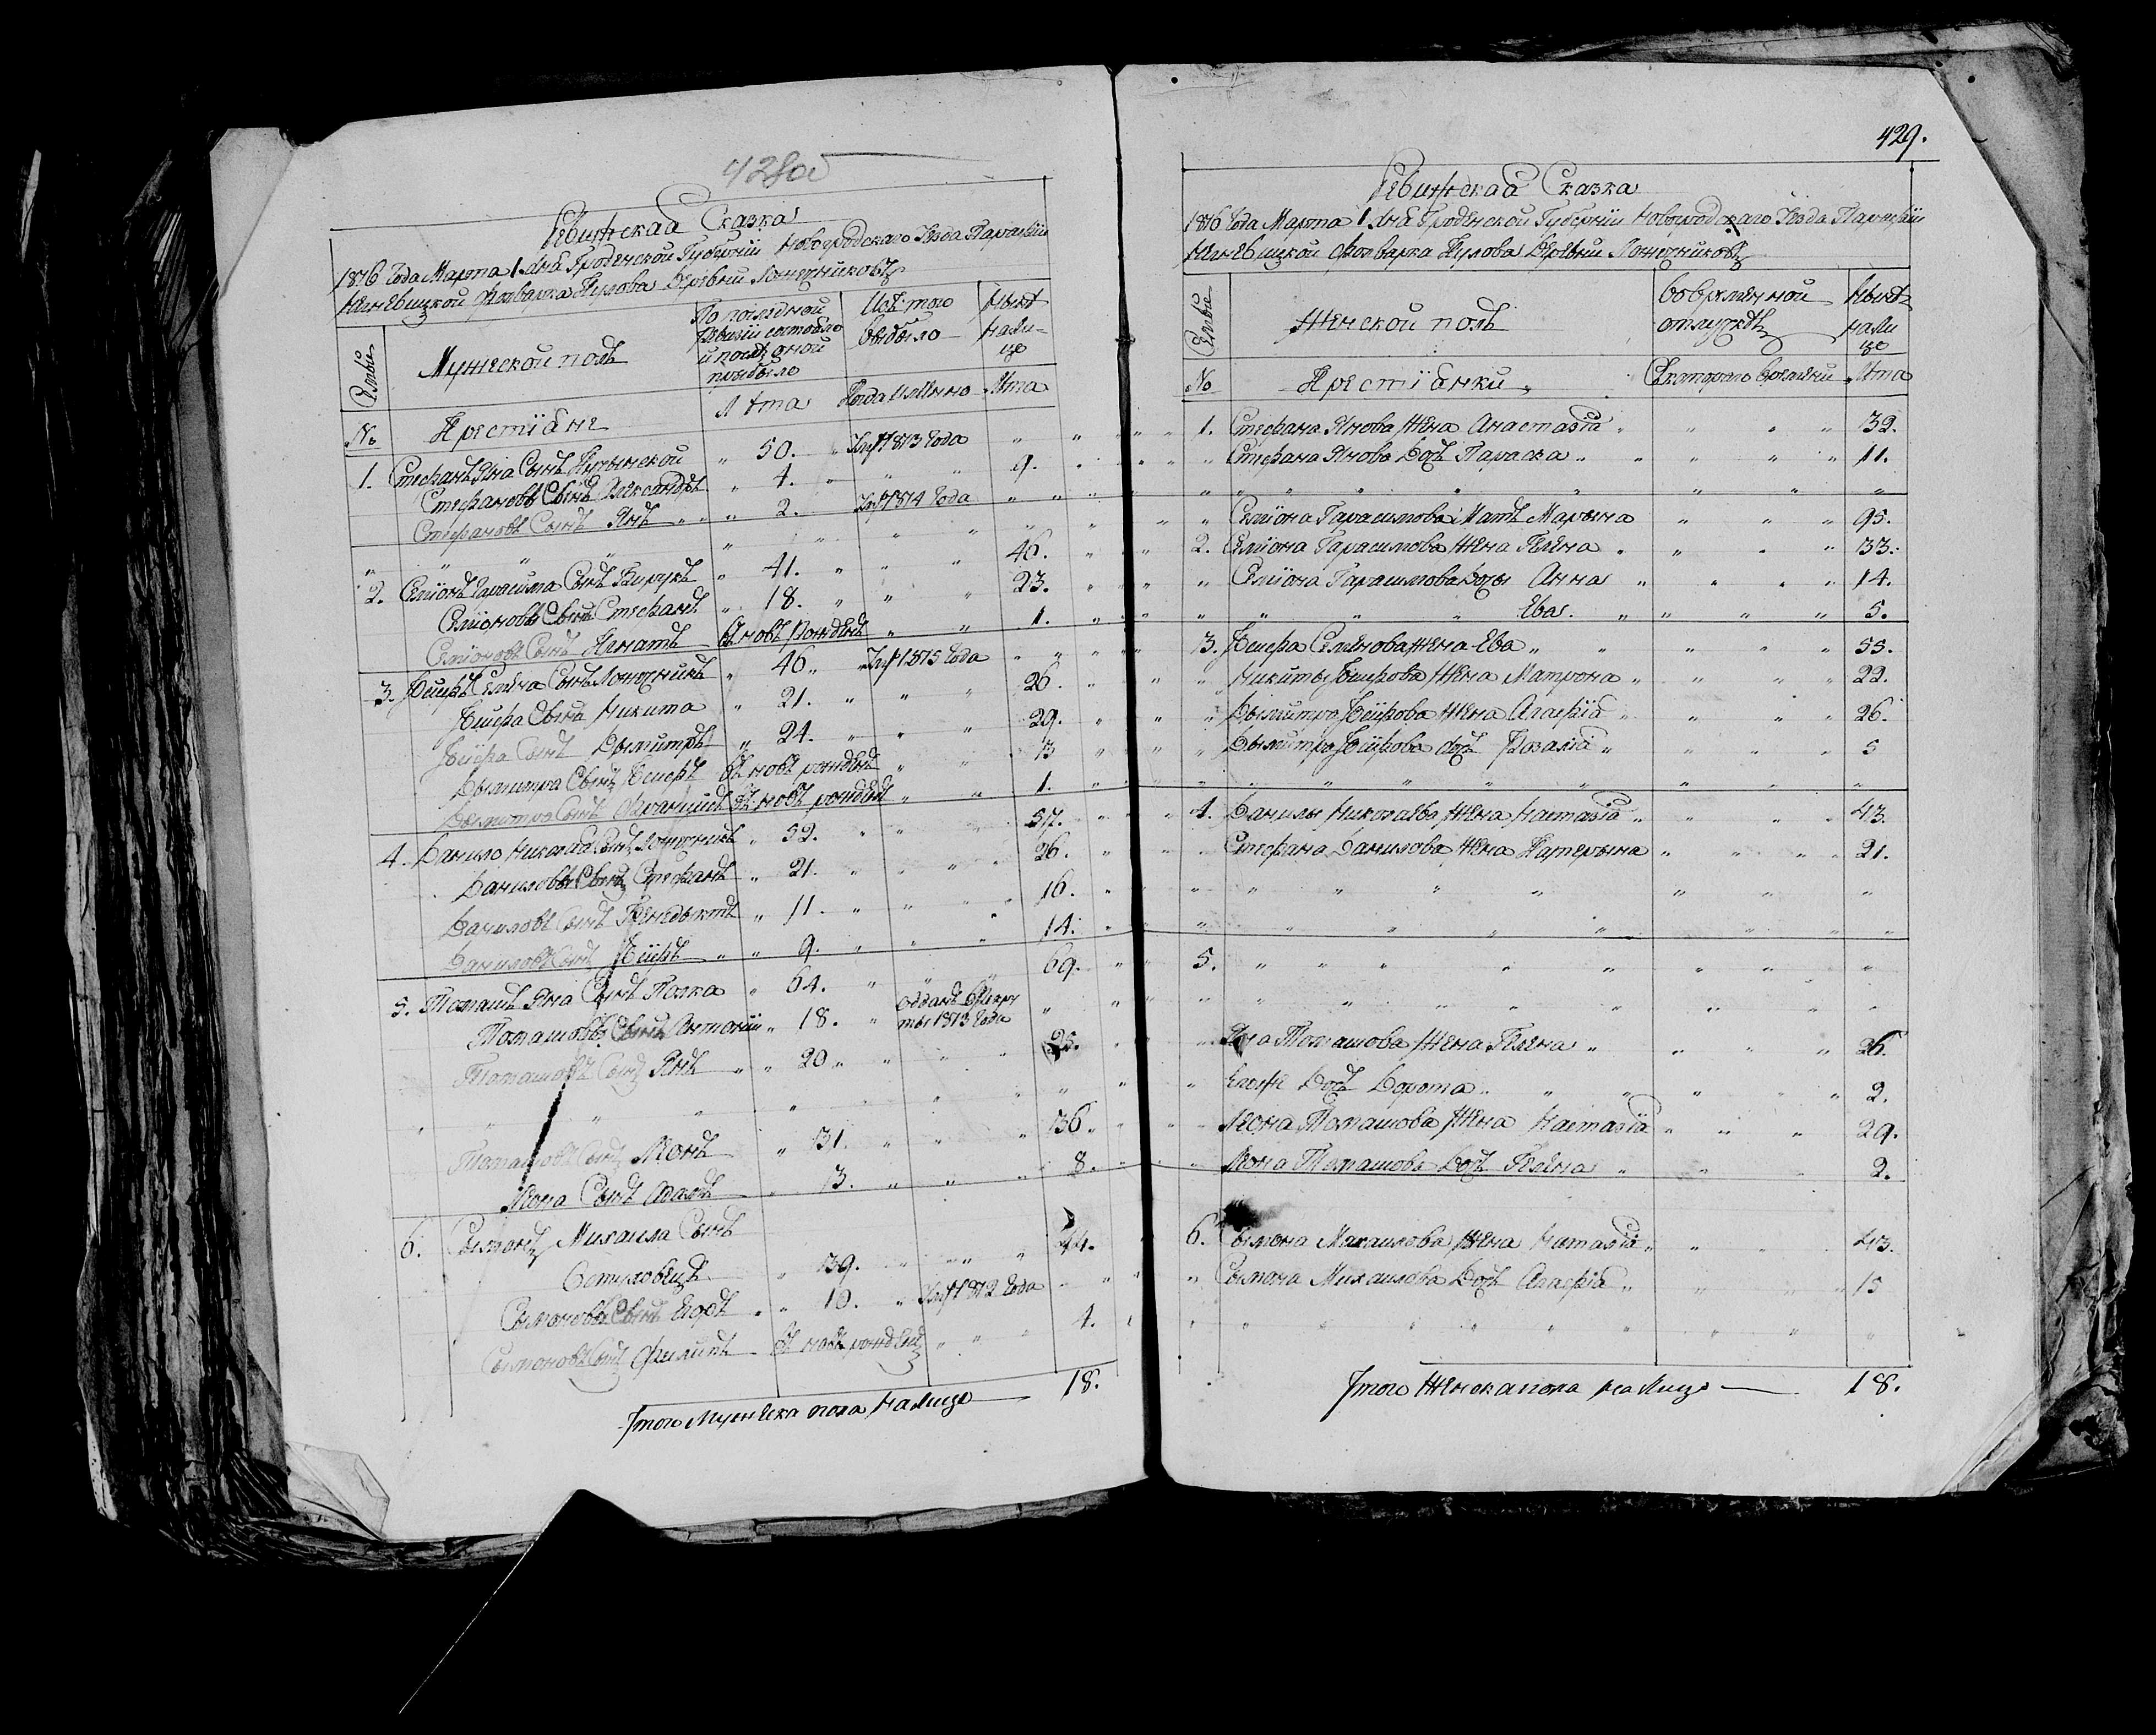 428об
Ревижская Сказка
1816 Года Марта 1. дня Гроденской Губернии Новогродского Уезда Парафии
Негневицкой Фольварка Деревни Ложечниковъ
Семьи
Мужеской полъ
По последной
ревизии состояло
и после оной
прибыло
Изъ того
выбыло
Ныне
нали-
цо
№
Крестіяне
Лета
Когда имянно
Лета
1. Стефанъ Яна Сынъ " 50. " Умръ 1813 Года "
Стефановы Сыны Александръ " 4. " " " 9.
Стефановъ Сынъ Янъ " " 2. Умръ 1814 Года "
" " " " " " "
2. Семіонъ Гарасима Сынъ " 41. " " " 46.
Семіоновы Сыны Стефанъ " 18. " " " 23.
Семіоновъ Сынъ Игнатъ Вновь рожденъ " " 1.
3. Іосифъ Семена Сынъ Ложечникъ " 46 " Умръ 1815 Года "
Іосифа Сыны Никита " 21. " " " 26.
Іосифа Сынъ Дымитръ " 24. " " " 29.
Дымитра Сыны Іосифъ Вновь рожденъ " " 3
Дымитра Сынъ Францишъ Вновь рожденъ " " 1.
4. Данило Николая Сынъ Ложечникъ " 52. " " " 57.
Даниловы Сыны Стефанъ " 21. " " " 26.
Даниловъ Сынъ Бенедыктъ " 11. " " " 16.
Даниловъ Сынъ Іосифъ " " 9. " " " 14.
5. Томашъ Яна Сынъ Полка " 64. " " " 69.
Томашовы Сыны Антоній " 18. " Отданъ в рекру
ты 1813 Года "
Томашовъ Сынъ Янъ " " 20 " " " 25.
" " " " " " "
Томашовъ Сынъ Леонъ " 31. " " " 36.
Леона Сынъ Адамъ " 3. " " " 8.
6. Сымонъ Михаила Сынъ
" 39. " " " 44.
Сымоновы Сыны " " 10. " Умръ 1812 Года
Сымоновъ Сынъ Филипъ Вновь рожденъ " " " 4.
Итого Мужеска пола налицо 18.
429.
Ревижская Сказка
1816 Года Марта 1. дня Гроденской Губернии Новогродскаго Уезда Парафии
Негневицкой Фольварка Деревни Ложечниковъ
Семьи
Женской полъ
Во временной
отлучке
Ныне
нали
цо
№
Крестіянки
Скоторого времени
Лета
1. Стефана Янова Жена Анастазія " " " " 32.
" Стефана Янова Дочь Параска " " " " " 11.
" " " " " " " " "
" Семіона Гарасимова Мать Марьяна " " " 95.
2. Семіона Гарасимова Жена Гелена " " " " 33.
" Семіона Гарасимова Дочи Анна " " " " 14.
" " " " Ева. " " " " 5.
3. Іосифа Семенова Жена Ева " " " " " 55.
" Никиты Іосифова Жена Матрона " " " " 22.
" Дымитра Іосифова Жена Агафія " " " " 26.
" Дымитра Іосифова дочь Розалія " " " " 5
" " " " " " " " "
4. Данилы Николаева Жена Настазія " " " " 43.
Стефана Данилова Жена Катерына " " " " 21.
" " " " " " " "
" " " " " " " "
5. " " " " " " " "
" " " " " " " " "
" Яна Томашова Жена Гелена " " " " 26.
" Ихже Дочь Дорота " " " " " " 2.
Леона Томашова Жена Настазія " " " 29.
Леона Томашова Дочь Гелена " " " 2.
6. Сымона Михаилова Жена Настазія " " " 43.
" Сымона Михаилова Дочь Агафія " " " " 15
" " " " " " " " "
Итого Женска пола налицо 18.